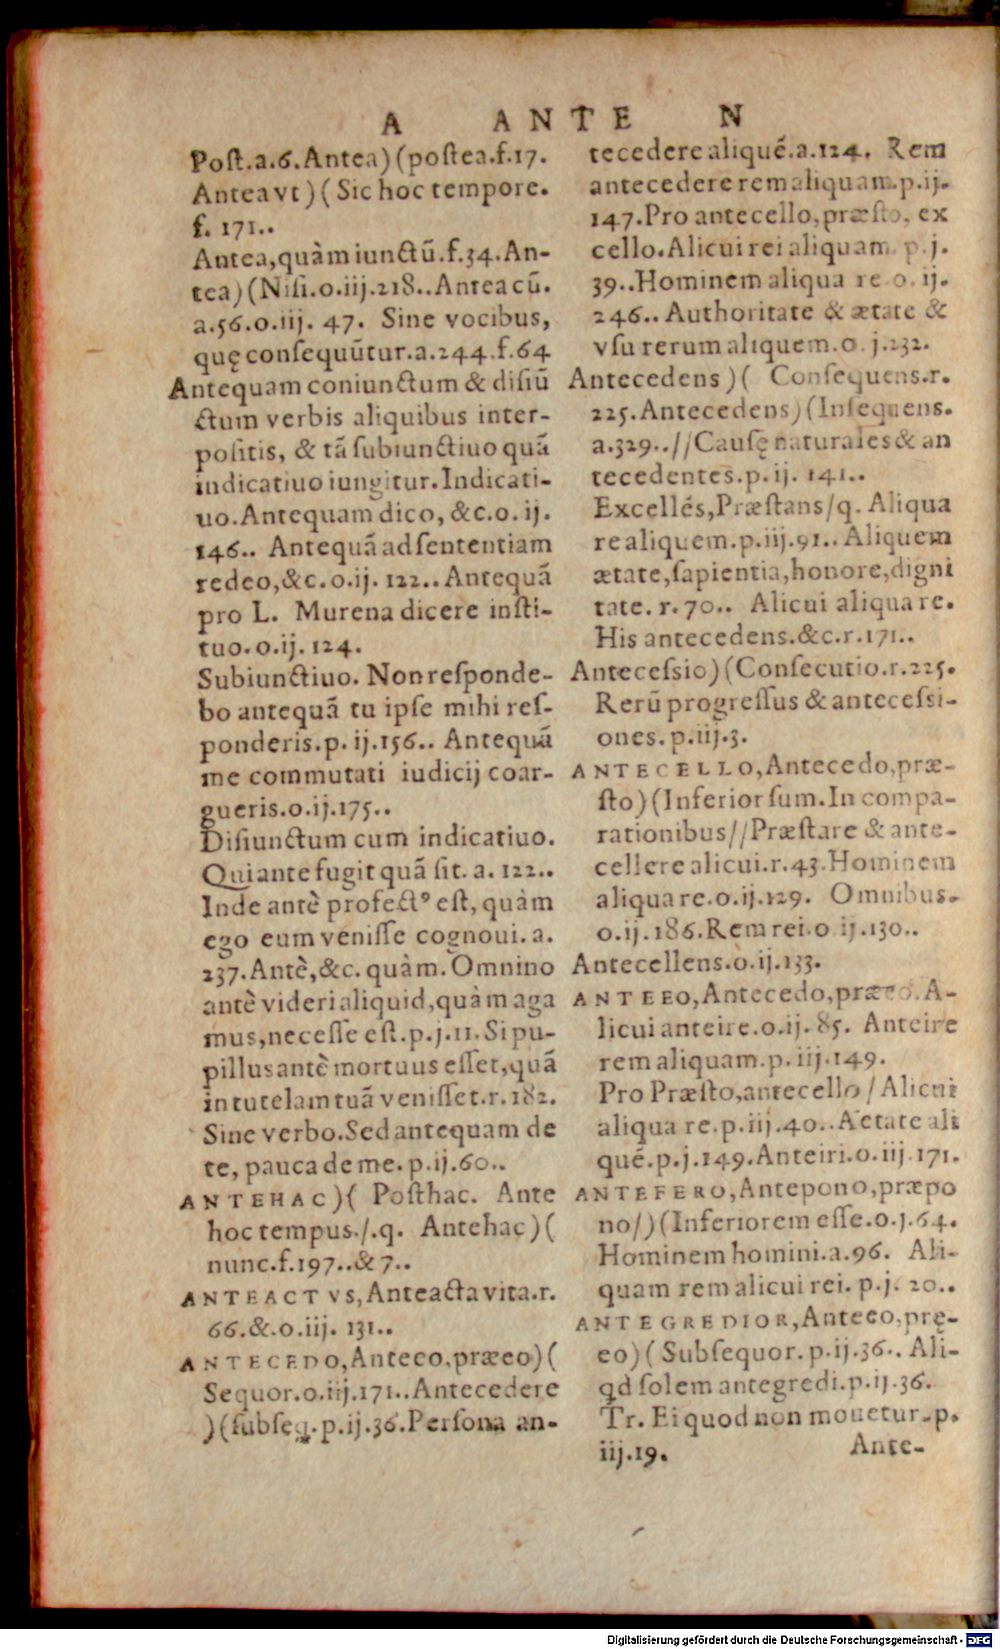 A ANTE N
Post.a.6.Antea)(postea.f.17.
Antea vt)(Sic hoc tempore.
f. 171..
Antea,quàm iunctũ.f.34.An-
tea)(Nisi.o.iij.218..Antea cũ.
a.56.o.iij. 47. Sine vocibus,
quę consequũtur.a.244.f.64
Antequam coniunctum & disiũ
ctum verbis aliquibus inter-
positis, & tã subiunctiuo quã
indicatiuo iungitur.Indicati-
uo.Antequam dico, &c.o. ij.
146.. Antequã ad sententiam
redeo,&c.o.ij. 122..Antequã
pro L. Murena dicere insti-
tuo.o.ij. 124.
Subiunctiuo. Non responde-
bo antequã tu ipse mihi res-
ponderis.p. ij.156.. Antequã
me commutati iudicij coar-
gueris.o.ij.175..
Disiunctum cum indicatiuo.
Qui ante fugit quã sit. a. 122..
Inde antè profectꝰ est, quàm
ego eum venisse cognoui. a.
237.Antè,&c. quàm. Omnino
antè videri aliquid,quàm aga
mus,necesse est.p.j.11. Si pu-
pillus antè mortuus esset,quã
in tutelam tuã venisset.r.182.
Sine verbo.Sed antequam de
te, pauca de me. p.ij.60..
ANTEHAC)( Posthac. Ante
hoc tempus./.q. Antehac)(
nunc.f.197..& 7..
ANTEACTVS,Anteacta vita.r.
66.&.o.iij. 131..
ANTECEDO,Anteeo,præeo)(
Sequor.o.iij.171..Antecedere
)(subseq.p.ij.36.Persona an-
tecedere aliquẽ.a.124. Rem
antecedere rem aliquam.p.ij.
147.Pro antecello,præsto, ex
cello.Alicui rei aliquam. p. j.
39..Hominem aliqua re o. ij.
246.. Authoritate & ætate &
vsu rerum aliquem.o.j.232.
Antecedens)( Consequens.r.
225.Antecedens)(Insequens.
a.329..//Causę naturales & an
tecedentes.p.ij. 141..
Excellẽs,Præstans/q. Aliqua
re aliquem.p.iij.91..Aliquem
ætate,sapientia,honore,digni
tate. r.70.. Alicui aliqua re.
His antecedens.&c.r.171..
Antecessio)(Consecutio.r.225.
Rerũ progressus & antecessi-
ones.p.iij.3.
ANTECELLO,Antecedo,præ-
sto)(Inferior sum.In compa-
rationibus//Præstare & ante-
cellere alicui.r.43.Hominem
aliqua re.o.ij.129. Omnibus.
o.ij.186.Rem rei.o ij.130..
Antecellens.o.ij.133.
ANTEEO,Antecedo,præeo.A-
licui anteire.o.ij.85. Anteire
rem aliquam.p.iij.149.
Pro Præsto,antecello/Alicui
aliqua re.p.iij.40..Aetate ali
quẽ.p.j.149.Anteiri.o.iij.171.
ANTEFERO,Antepono,præpo
no/)(Inferiorem esse.o.j.64.
Hominem homini.a.96. Ali-
quam rem alicui rei. p.j. 20..
ANTEGREDIOR,Anteeo,prę-
eo)( Subsequor. p.ij.36.. Ali-
qd solem antegredi.p.ij.36.
Tr. Ei quod non mouetur.p.
iij.19. Ante-
Digitalisierung gefördert durch die Deutsche Forschungsgemeinschaft - DFG